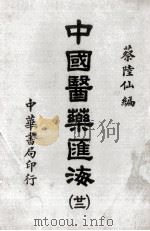 蔡陸仙編
中國醫藥滙海
(廿二)
中華書局印行